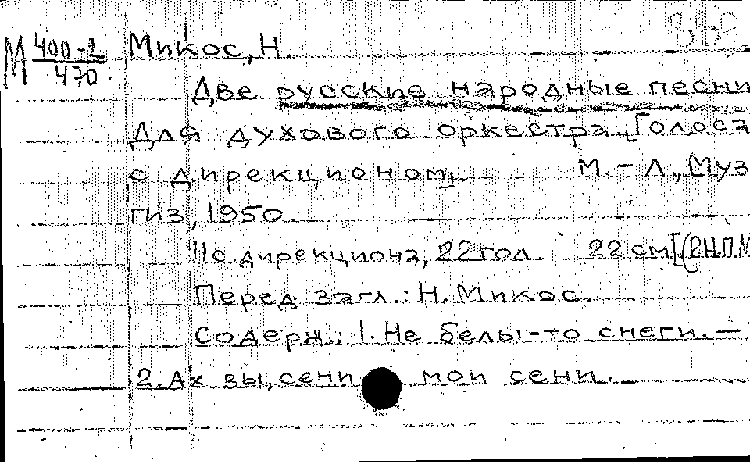 М 400-1 Микос, Н.
470.
Две русские народные песни
Для духового оркестра. [Голоса
с дирекционом]. М. - Л., Муз
гиз, 1950.
дирекциона, 22 гол. 22 см. [(2Н.П.М
Перед загл.: Н. Микос.
Содерж.: 1. Не белы-то снеги. —
2. Ах вы, сени мои сени.